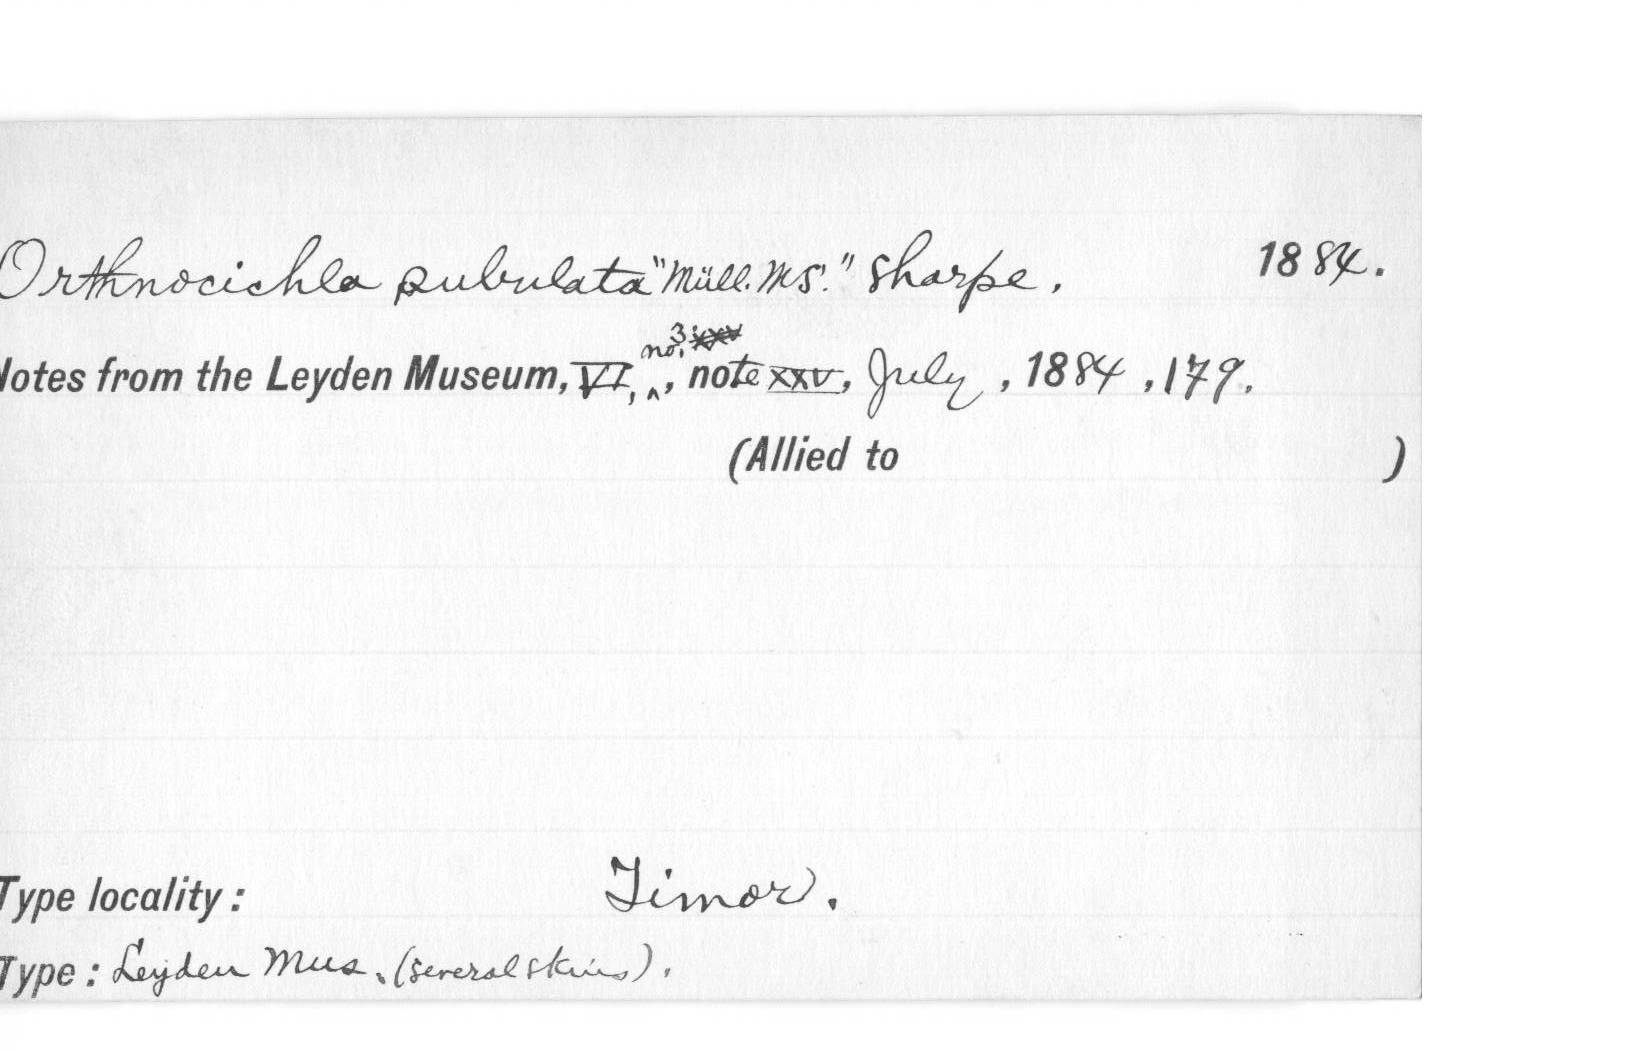 Orthnocichla subulata "Müll. MS." Sharpe. 1884.
Notes from the Leyden Museum, VI, no. 3, note XXV, July, 1884, 179.
(Allied to )
Type locality: Timor.
Type: Leyden Mus. (several skins).